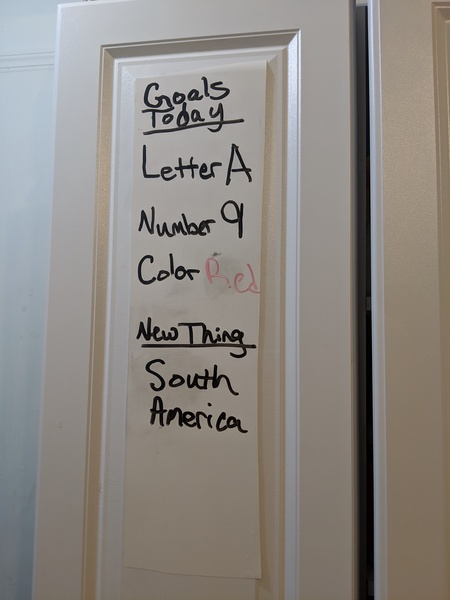 Goals
Today
Letter A
Number 9
Color Red
New Thing
South
America